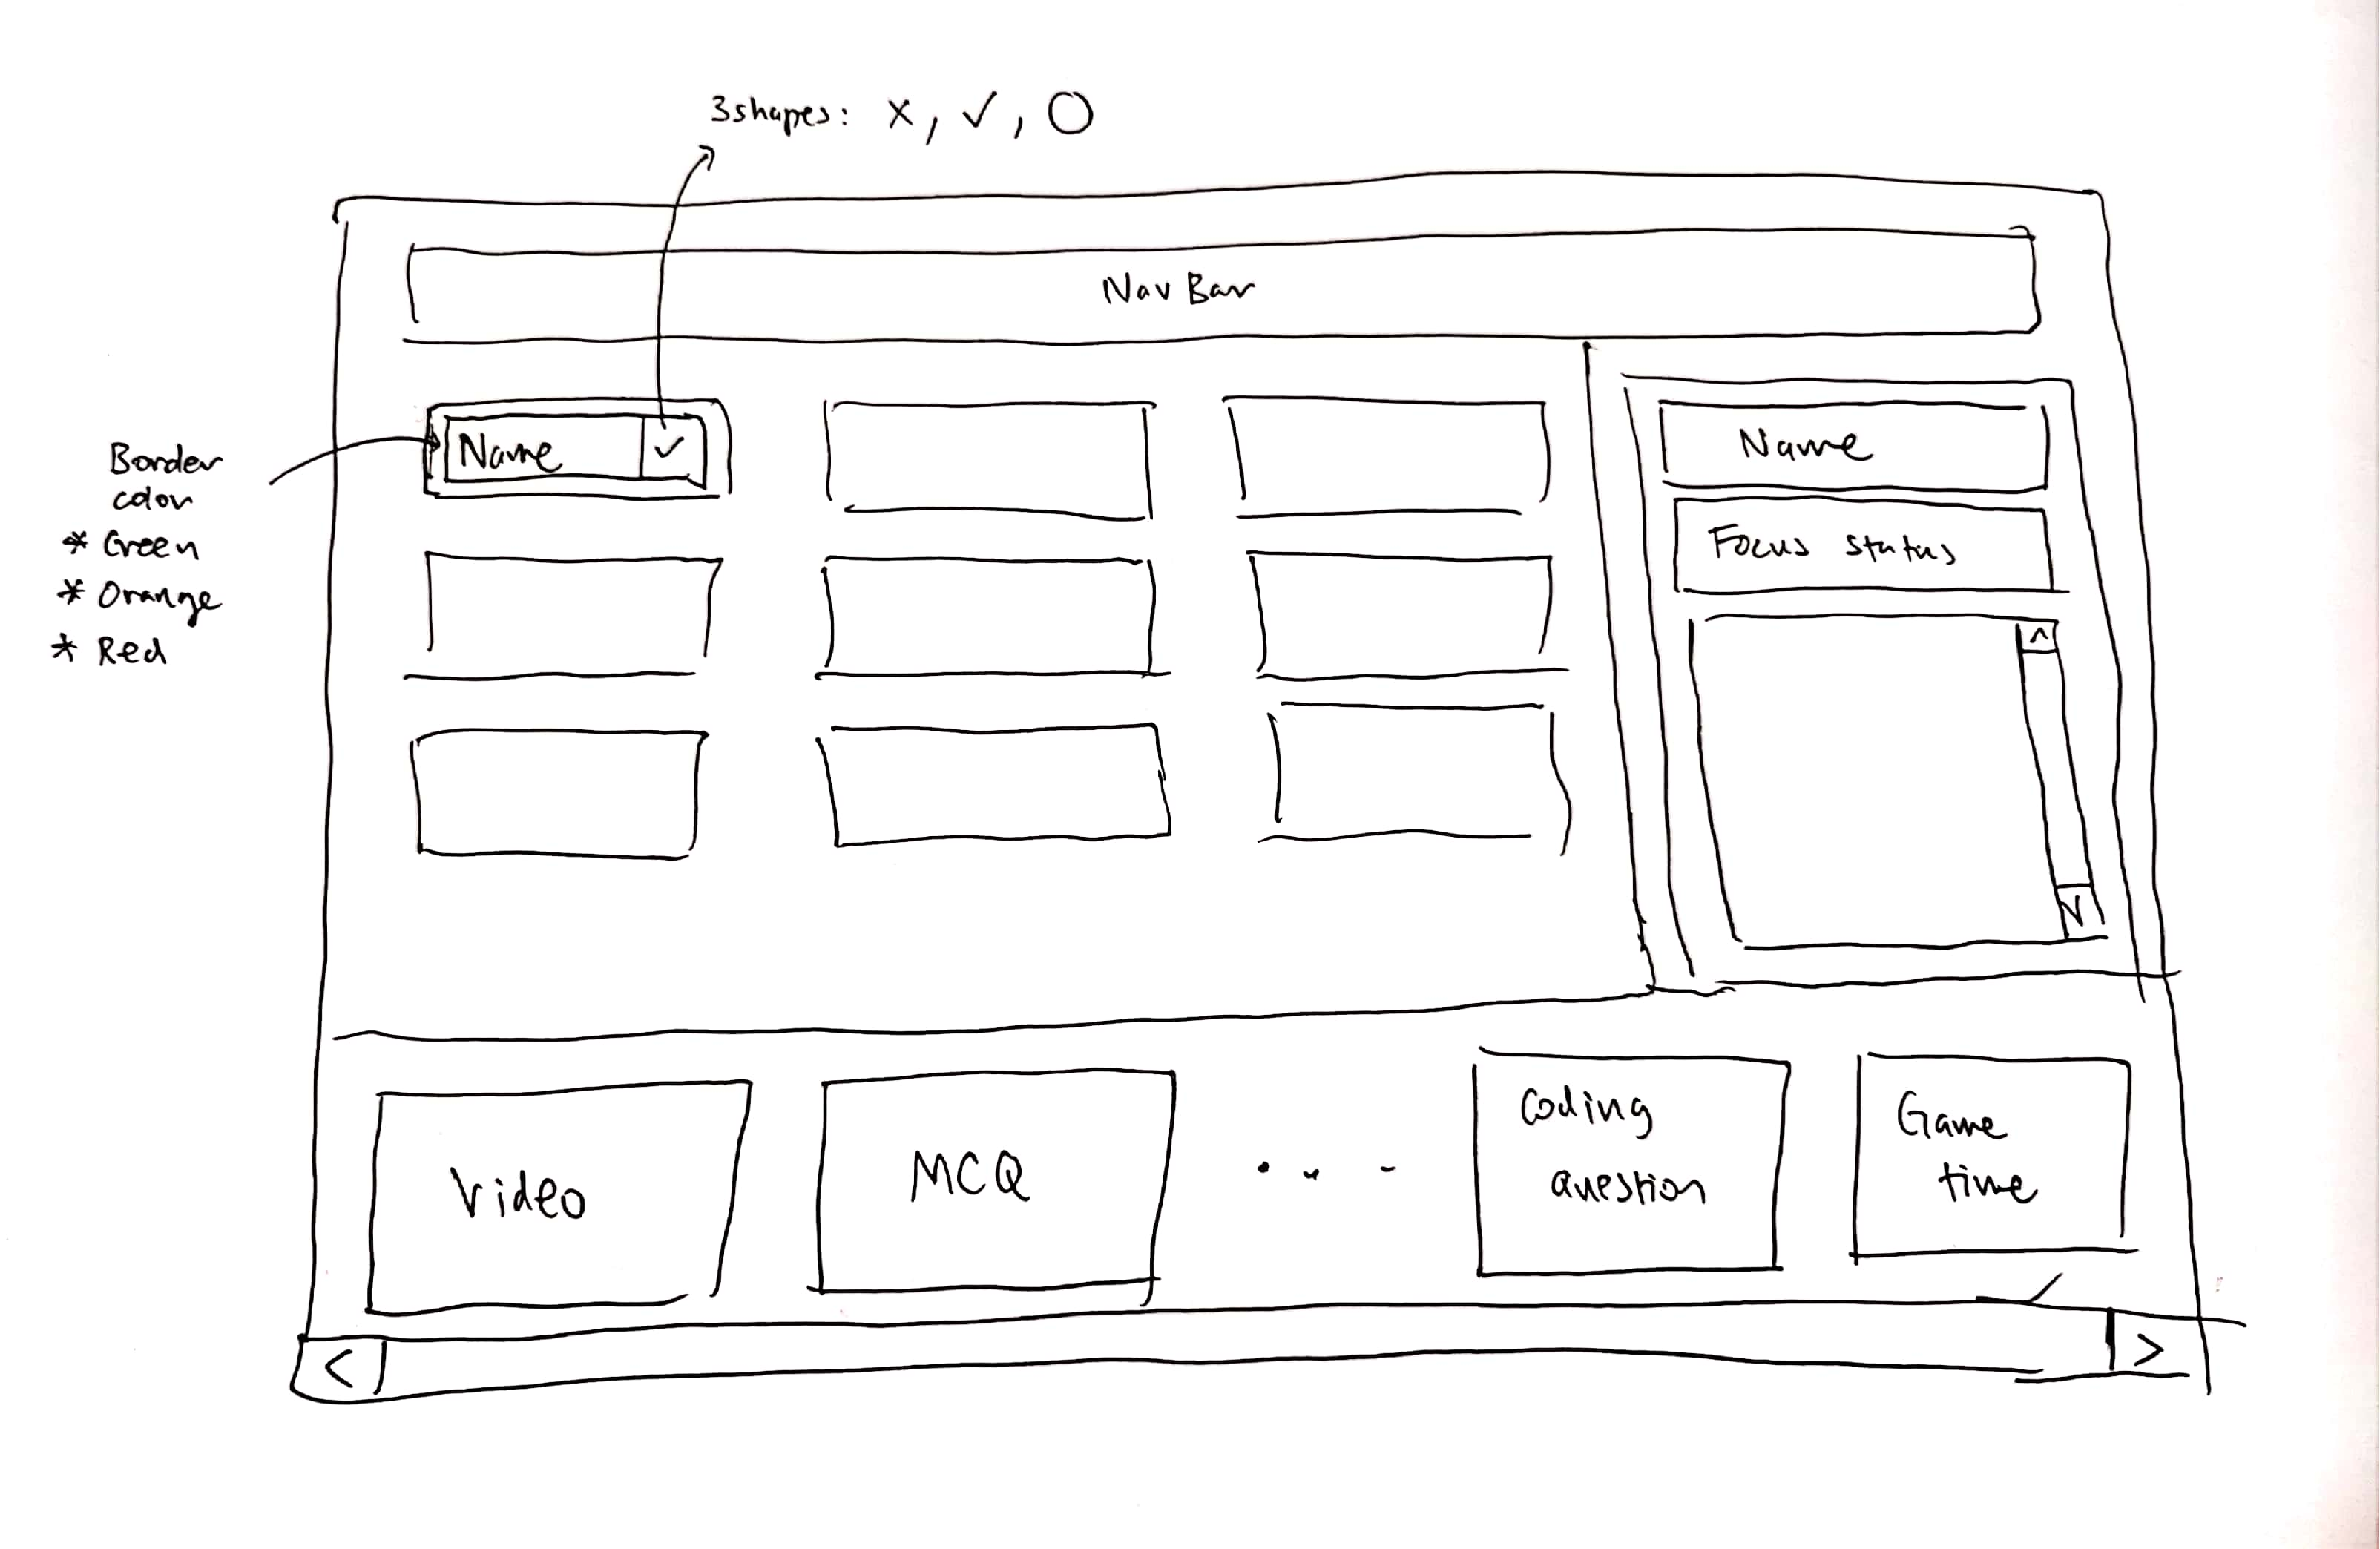 3 shapes: x, ✓, ○
Nav Bar
Name ✓
Border
color
* Green
* Orange
* Red
Name
Focus status
^
v
Video
MCQ
...
Coding
question
Game
time
<
>